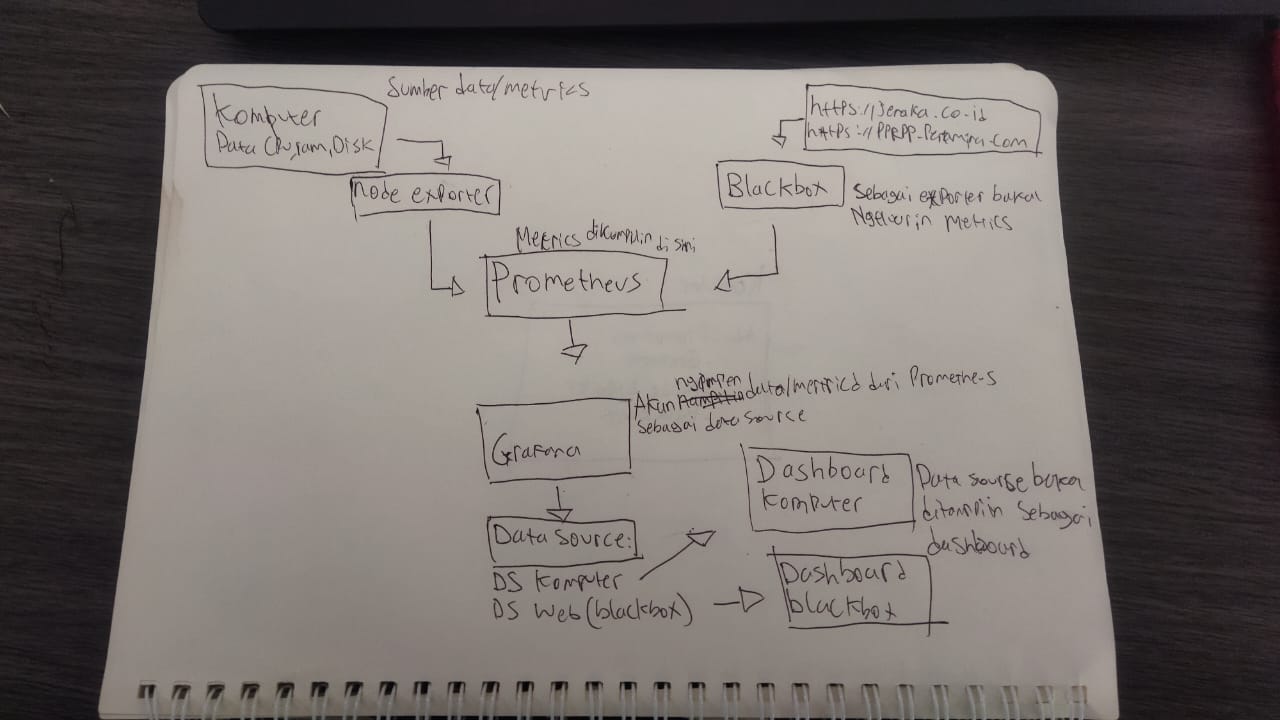 Sumber data/metrics
Komputer
Data CPU, ram, Disk
https://Jenaka.co.id
https://PPRPP-Pertamina.com
node exporter
Blackbox
Sebagai exporter bakal
Ngeluarin metrics
Metrics dikumpulin di sini
Prometheus
Grafana
Akan ngimpen data/metricd dari Prometheus
Sebagai data source
Data Source:
DS Komputer
DS Web (blackbox)
Dashboard
Komputer
Data source bakal
ditampilin sebagai
dashboard
Dashboard
blackbox